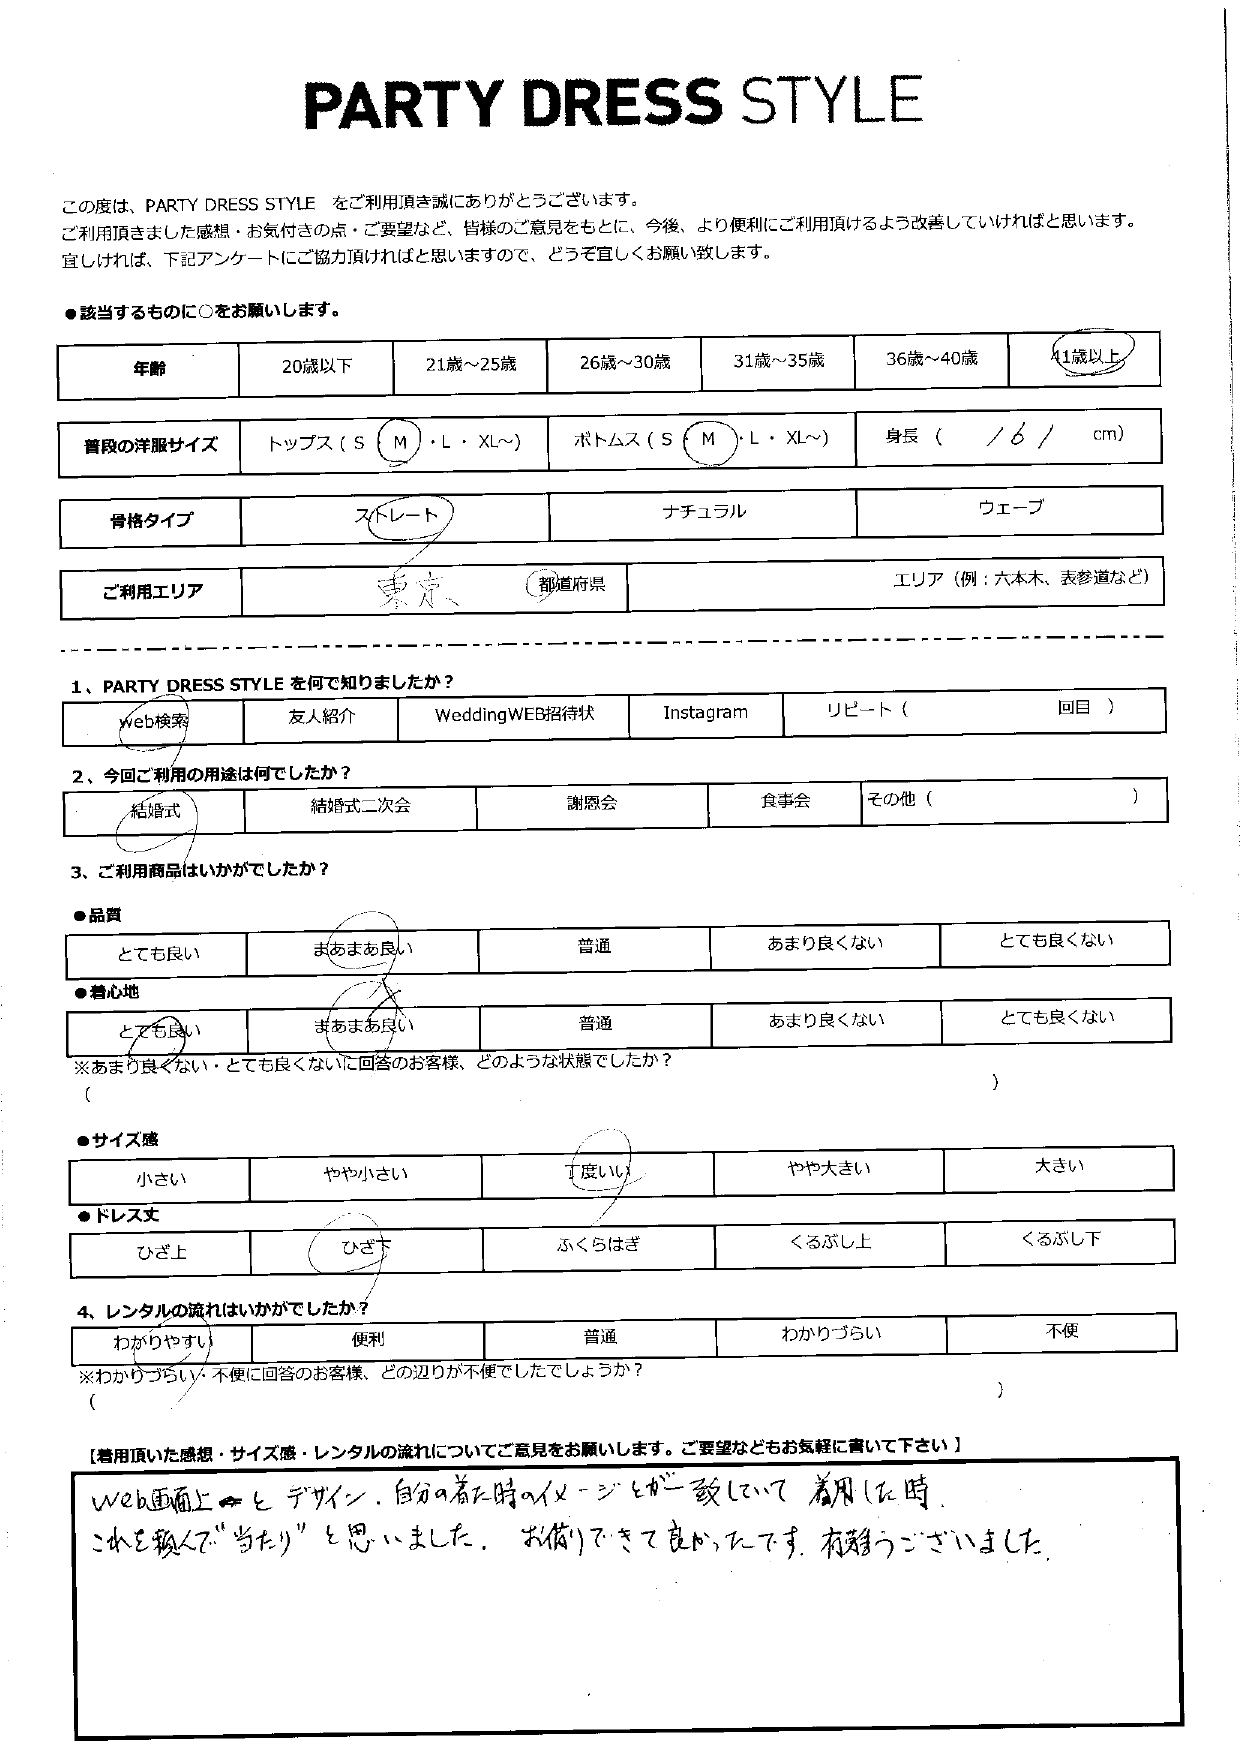 PARTY DRESS STYLE
この度は、PARTY DRESS STYLE をご利用頂き誠にありがとうございます。
ご利用頂きました感想・お気付きの点・ご要望など、皆様のご意見をもとに、今後、より便利にご利用頂けるよう改善していければと思います。
宜しければ、下記アンケートにご協力頂ければと思いますので、どうぞ宜しくお願い致します。
●該当するものに○をお願いします。
年齢 20歳以下 21歳～25歳 26歳～30歳 31歳～35歳 36歳～40歳 41歳以上
普段の洋服サイズ トップス ( S ・ M ・ L ・ XL～) ボトムス ( S ・ M ・ L ・ XL～) 身長 ( 161 cm)
骨格タイプ ストレート ナチュラル ウェーブ
ご利用エリア 東京 都道府県 エリア（例：六本木、表参道など）
1、PARTY DRESS STYLE を何で知りましたか？
web検索 友人紹介 WeddingWEB招待状 Instagram リピート（ 回目 ）
2、今回ご利用の用途は何でしたか？
結婚式 結婚式二次会 謝恩会 食事会 その他（ ）
3、ご利用商品はいかがでしたか？
●品質
とても良い まあまあ良い 普通 あまり良くない とても良くない
●着心地
とても良い まあまあ良い 普通 あまり良くない とても良くない
※あまり良くない・とても良くないに回答のお客様、どのような状態でしたか？
（ ）
●サイズ感
小さい やや小さい 丁度いい やや大きい 大きい
●ドレス丈
ひざ上 ひざ下 ふくらはぎ くるぶし上 くるぶし下
4、レンタルの流れはいかがでしたか？
わかりやすい 便利 普通 わかりづらい 不便
※わかりづらい・不便に回答のお客様、どの辺りが不便でしたでしょうか？
（ ）
【着用頂いた感想・サイズ感・レンタルの流れについてご意見をお願いします。ご要望などもお気軽に書いて下さい 】
web画面上とデザイン、自分の着た時のイメージとが一致していて 着用した時、
これを頼んで"当たり"と思いました。お借りできて良かったです。有難うございました。